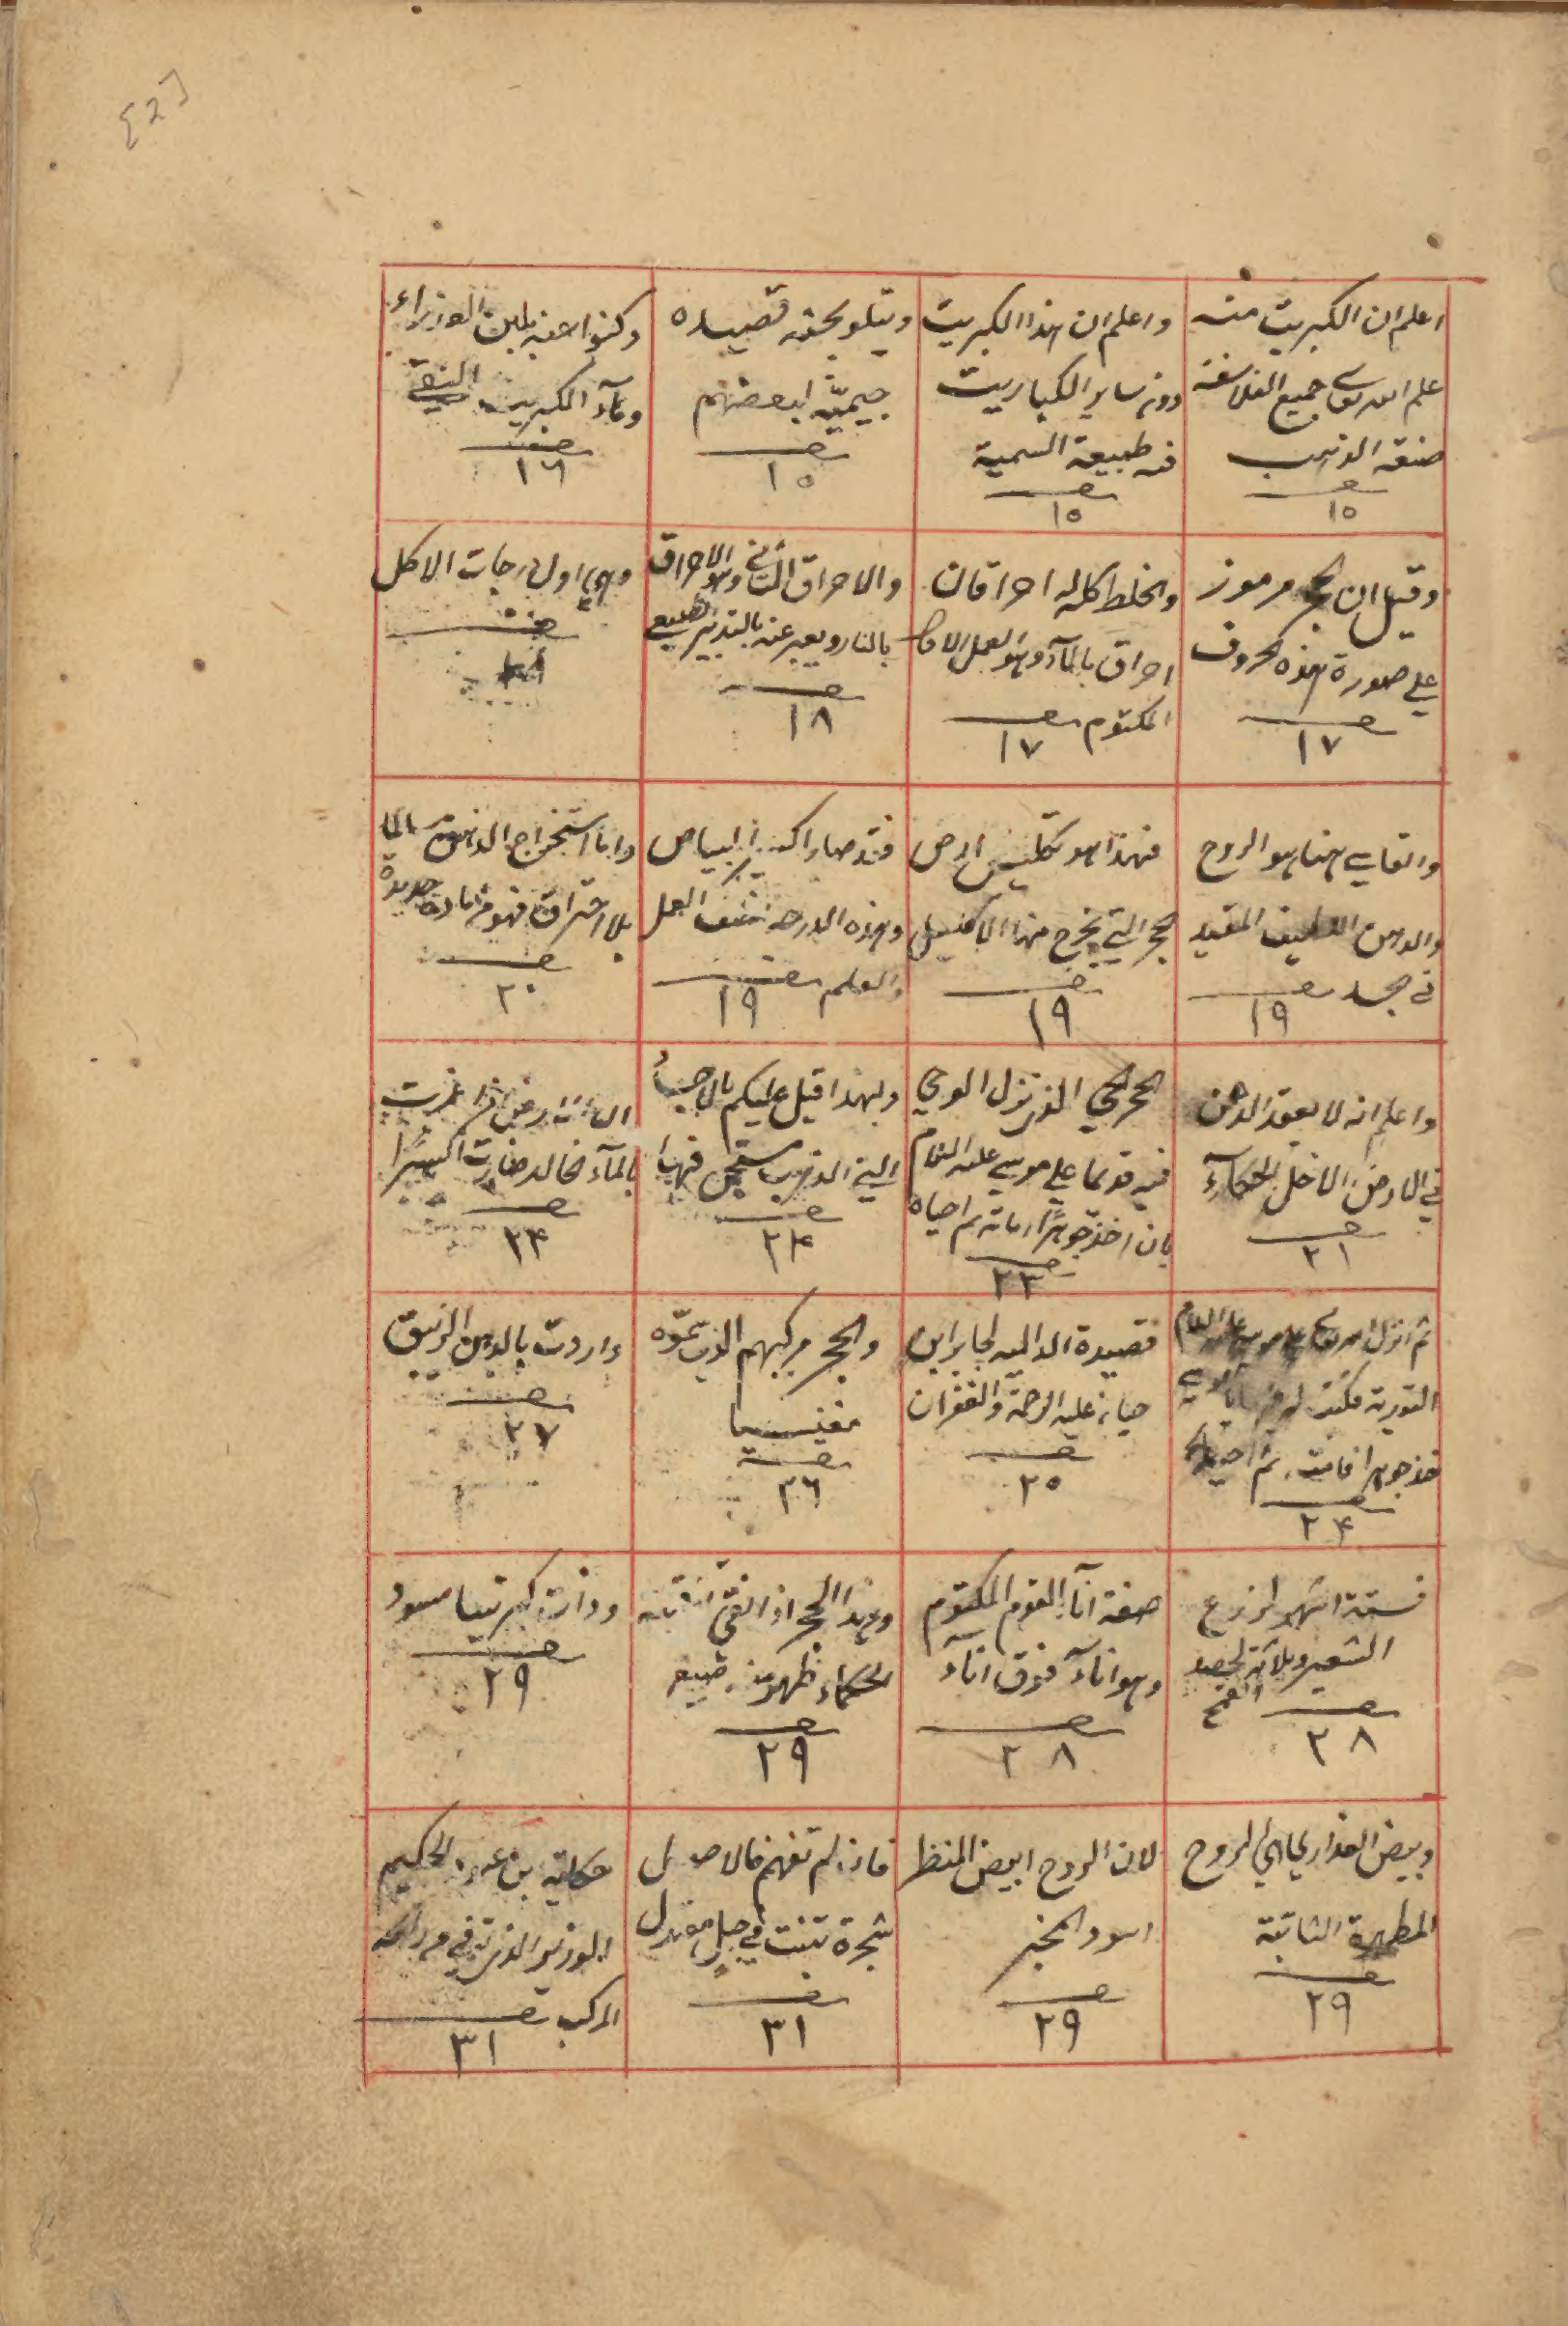 [2]
اعلم ان الكبريت منه
علم الله تعالى جميع الفلاسفة
صنعة الذهب
صـ
١٥
واعلم ان هذا الكبريت
دون ساير الكباريت
فيه طبيعة السمية
صـ
١٥
ويتلو بحقه قصيده
جيمية لبعضهم
صـ
١٥
وكنوا عنه بلبن العذراء
وماء الكبريت النقى
صـ
١٦
وقيل ان الحجر مرموز
على صورة هذه الحروف
صـ
١٧
والخلط كله احراقان
احراق بالماء وهو العمل الاول
المكتوم صـ
١٧
والاحراق الثانى وهو الاحراق
بالنار ويعبر عنه بالتدبير الطبيعى
صـ
١٨
وهى اول درجات الاكل
صـ
١٨
والقاسى هنا هو الروح
والدهن اللطيف المقيد
فى جسد صـ
١٩
فهذا هو تكليس ارض
الحجر التى يخرج منها الاكليل
صـ
١٩
فقد صار اكسير البياض
وهذه الدرجه نصف العمل
والعلم صـ
١٩
واما استخراج الدهن من الما
بلا احتراق فهو من مادة جديدة
صـ
٢٠
واعلم انه لا يعقد الدهن
فى الارض الا خل الحكماء
صـ
٢١
الحجر الحى الذى نزل الوحى
فيه قديما على موسى عليه السلام
بان اخذ جوهرا اماته ثم احياه
صـ
٢٣
ولهذا قيل عليكم بالاحب
الينا الذهب
صـ
٢٤
بالماء الخالد صارت اكسيرا
صـ
٢٤
ثم انزل الله تعالى على موسى عليه السلام
التورية فكتب
خذ جوهرا فامته ثم احيه
صـ
٢٤
قصيدة الداليه لجابر ابن
حيان عليه الرحمة والغفران
صـ
٢٥
والحجر مركبهم الذى سموه
مغنيسيا
صـ
٢٦
واردت بالدهن الزيبق
صـ
٢٧
فستة اشهر لزرع
الشعير وثلاثة لحصد
القمح صـ
٢٨
صفة اناء القوم المكتوم
وهو اناء فوق اناء
صـ
٢٨
وهذا الحجر اذا القى
الحكماء ظهر منه صبغ
صـ
٢٩
صـ
٢٩
وبيض العذارى هى الروح
المطهرة الثابتة
صـ
٢٩
لان الروح ابيض المنظر
اسود المخبر
صـ
٢٩
فان لم تفهم فالاصل
شجرة تنبت فى جبل معتدل
صـ
٣١
حكاية بن الحكيم
الوزير الذى
المركب صـ
٣١